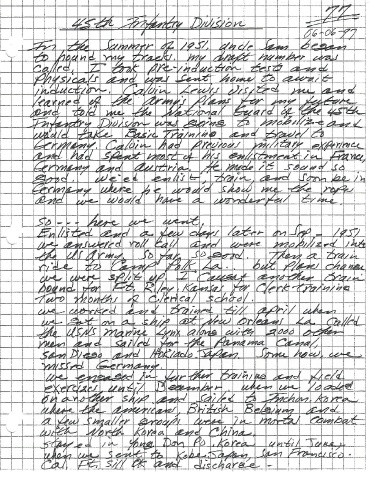 77
45th Infantry Division
06-06-97
In the Summer of 1951, uncle Sam began
to hound my tracks. my draft number was
called, I took pre-induction tests and
Physicals and was sent home to await
induction. Calvin Lewis visited me and
learned of the Army's plans for my future
and told me the National Guard of the 45th
Infantry Division was going to mobilize and
would take Basic Training and travel to
Germany. Calvin had previous military experience
and had spent most of his enlistment in France,
Germany and Austria. He made it sound so
good. we'ed enlist, train, and soon be in
Germany where he would show me the ropes
and we would have a wonderful time.
So --- here we went.
Enlisted and a few days later on Sep - 1951
we answered roll call and were mobilized into
the US Army. so far, so good. Then a train
ride to Camp Polk La. but plans change
we were split up. I caught another train
bound for Ft. Riley Kansas for Clerk training
Two months of Clerical school.
we worked and trained till april when
we got on a ship at New Orleans La called
the USNS marine Lynx along with 2000 other
men and sailed for the Panama Canal,
San Diego and Hokiado Japan. Some how, we
missed Germany.
we engaged in further training and field
exercises until December, when we loaded
on another ship and sailed to Inchon, Korea
where the americans, British Belgium and
a few smaller groups were in mortal combat
with North Korea and China.
stayed in Yong Don Po, Korea until June,
when we sent to Kobe Japan, San Francisco.
Cal, Ft. Sill Ok and discharge -